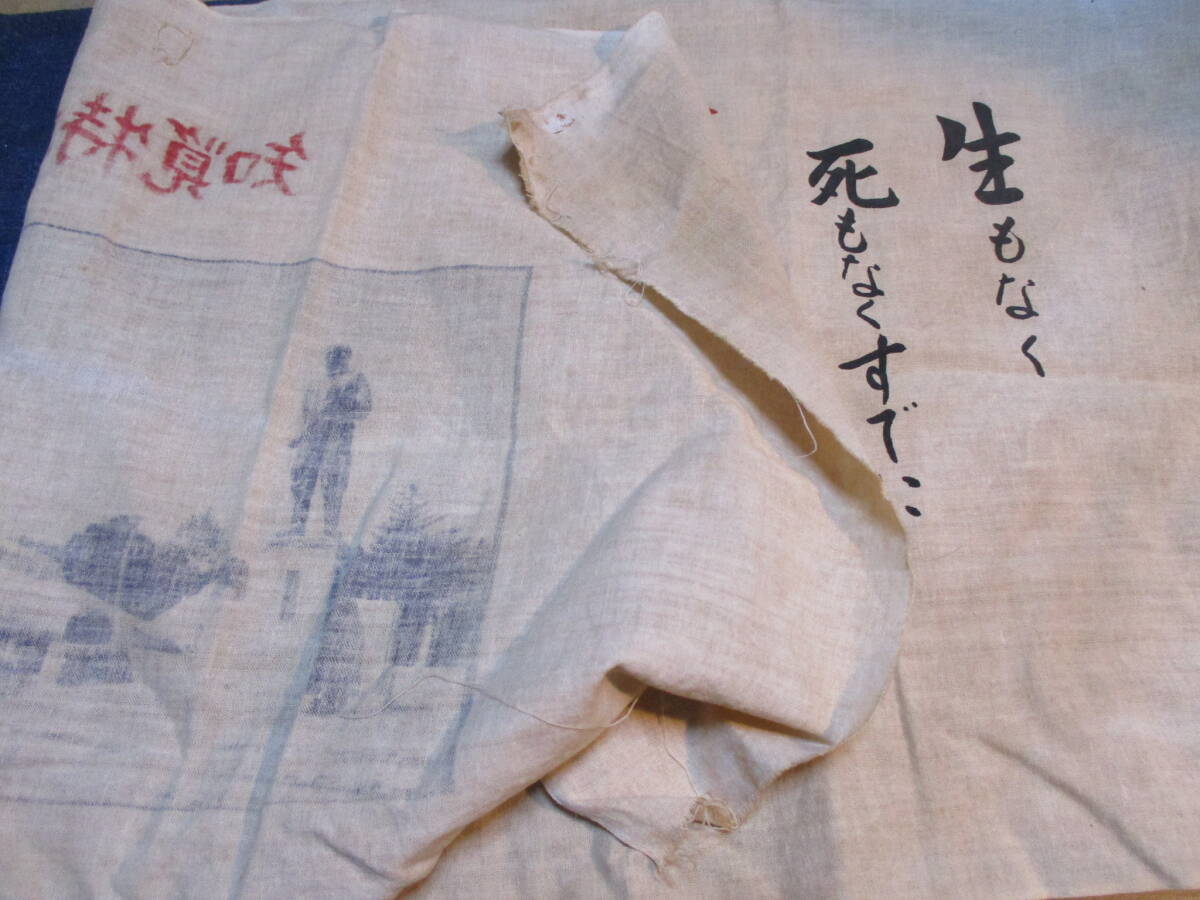 生もなく
死もなくすで
知覧特